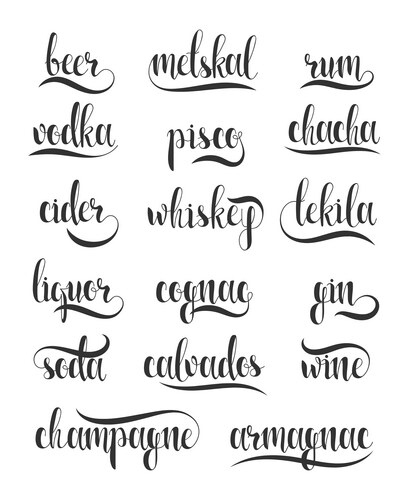 beer metskal rum
vodka pisco chacha
cider whiskey tekila
liquor cognac gin
soda calvados wine
champagne armagnac